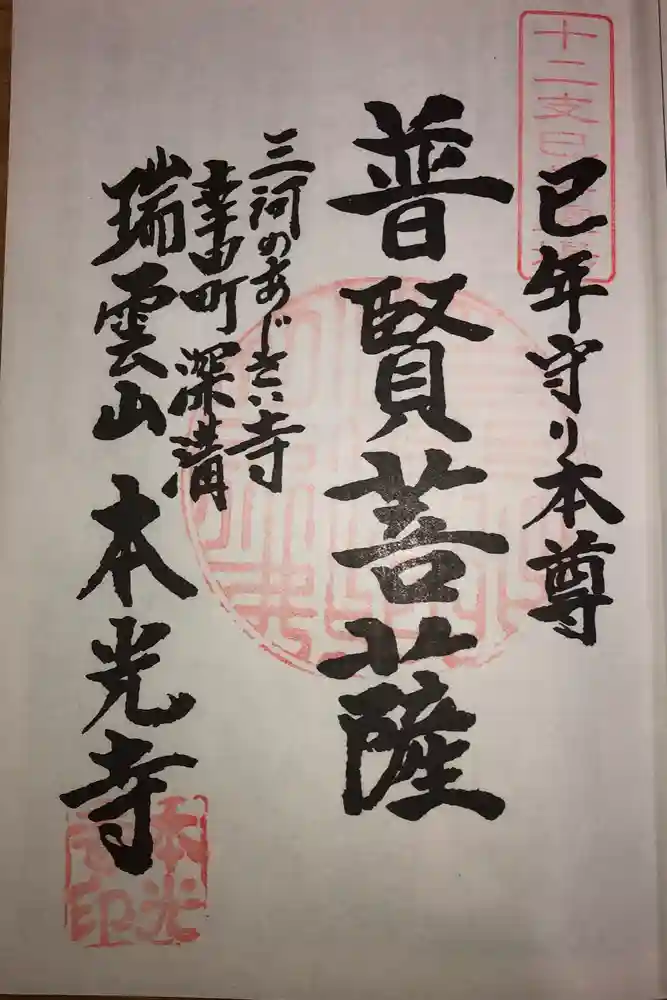 十二支日
巳年守り本尊
普賢菩薩
三河のあじさい寺
幸田町深溝
瑞雲山本光寺
本光
寺印